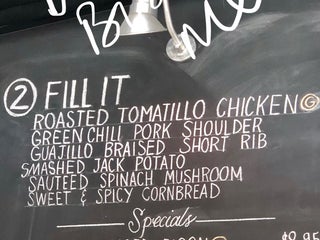 ② FILL IT
ROASTED TOMATILLO CHICKEN Ⓖ
GREEN CHILI PORK SHOULDER
GUAJILLO BRAISED SHORT RIB
SMASHED JACK POTATO
SAUTEED SPINACH MUSHROOM
SWEET & SPICY CORNBREAD
Specials